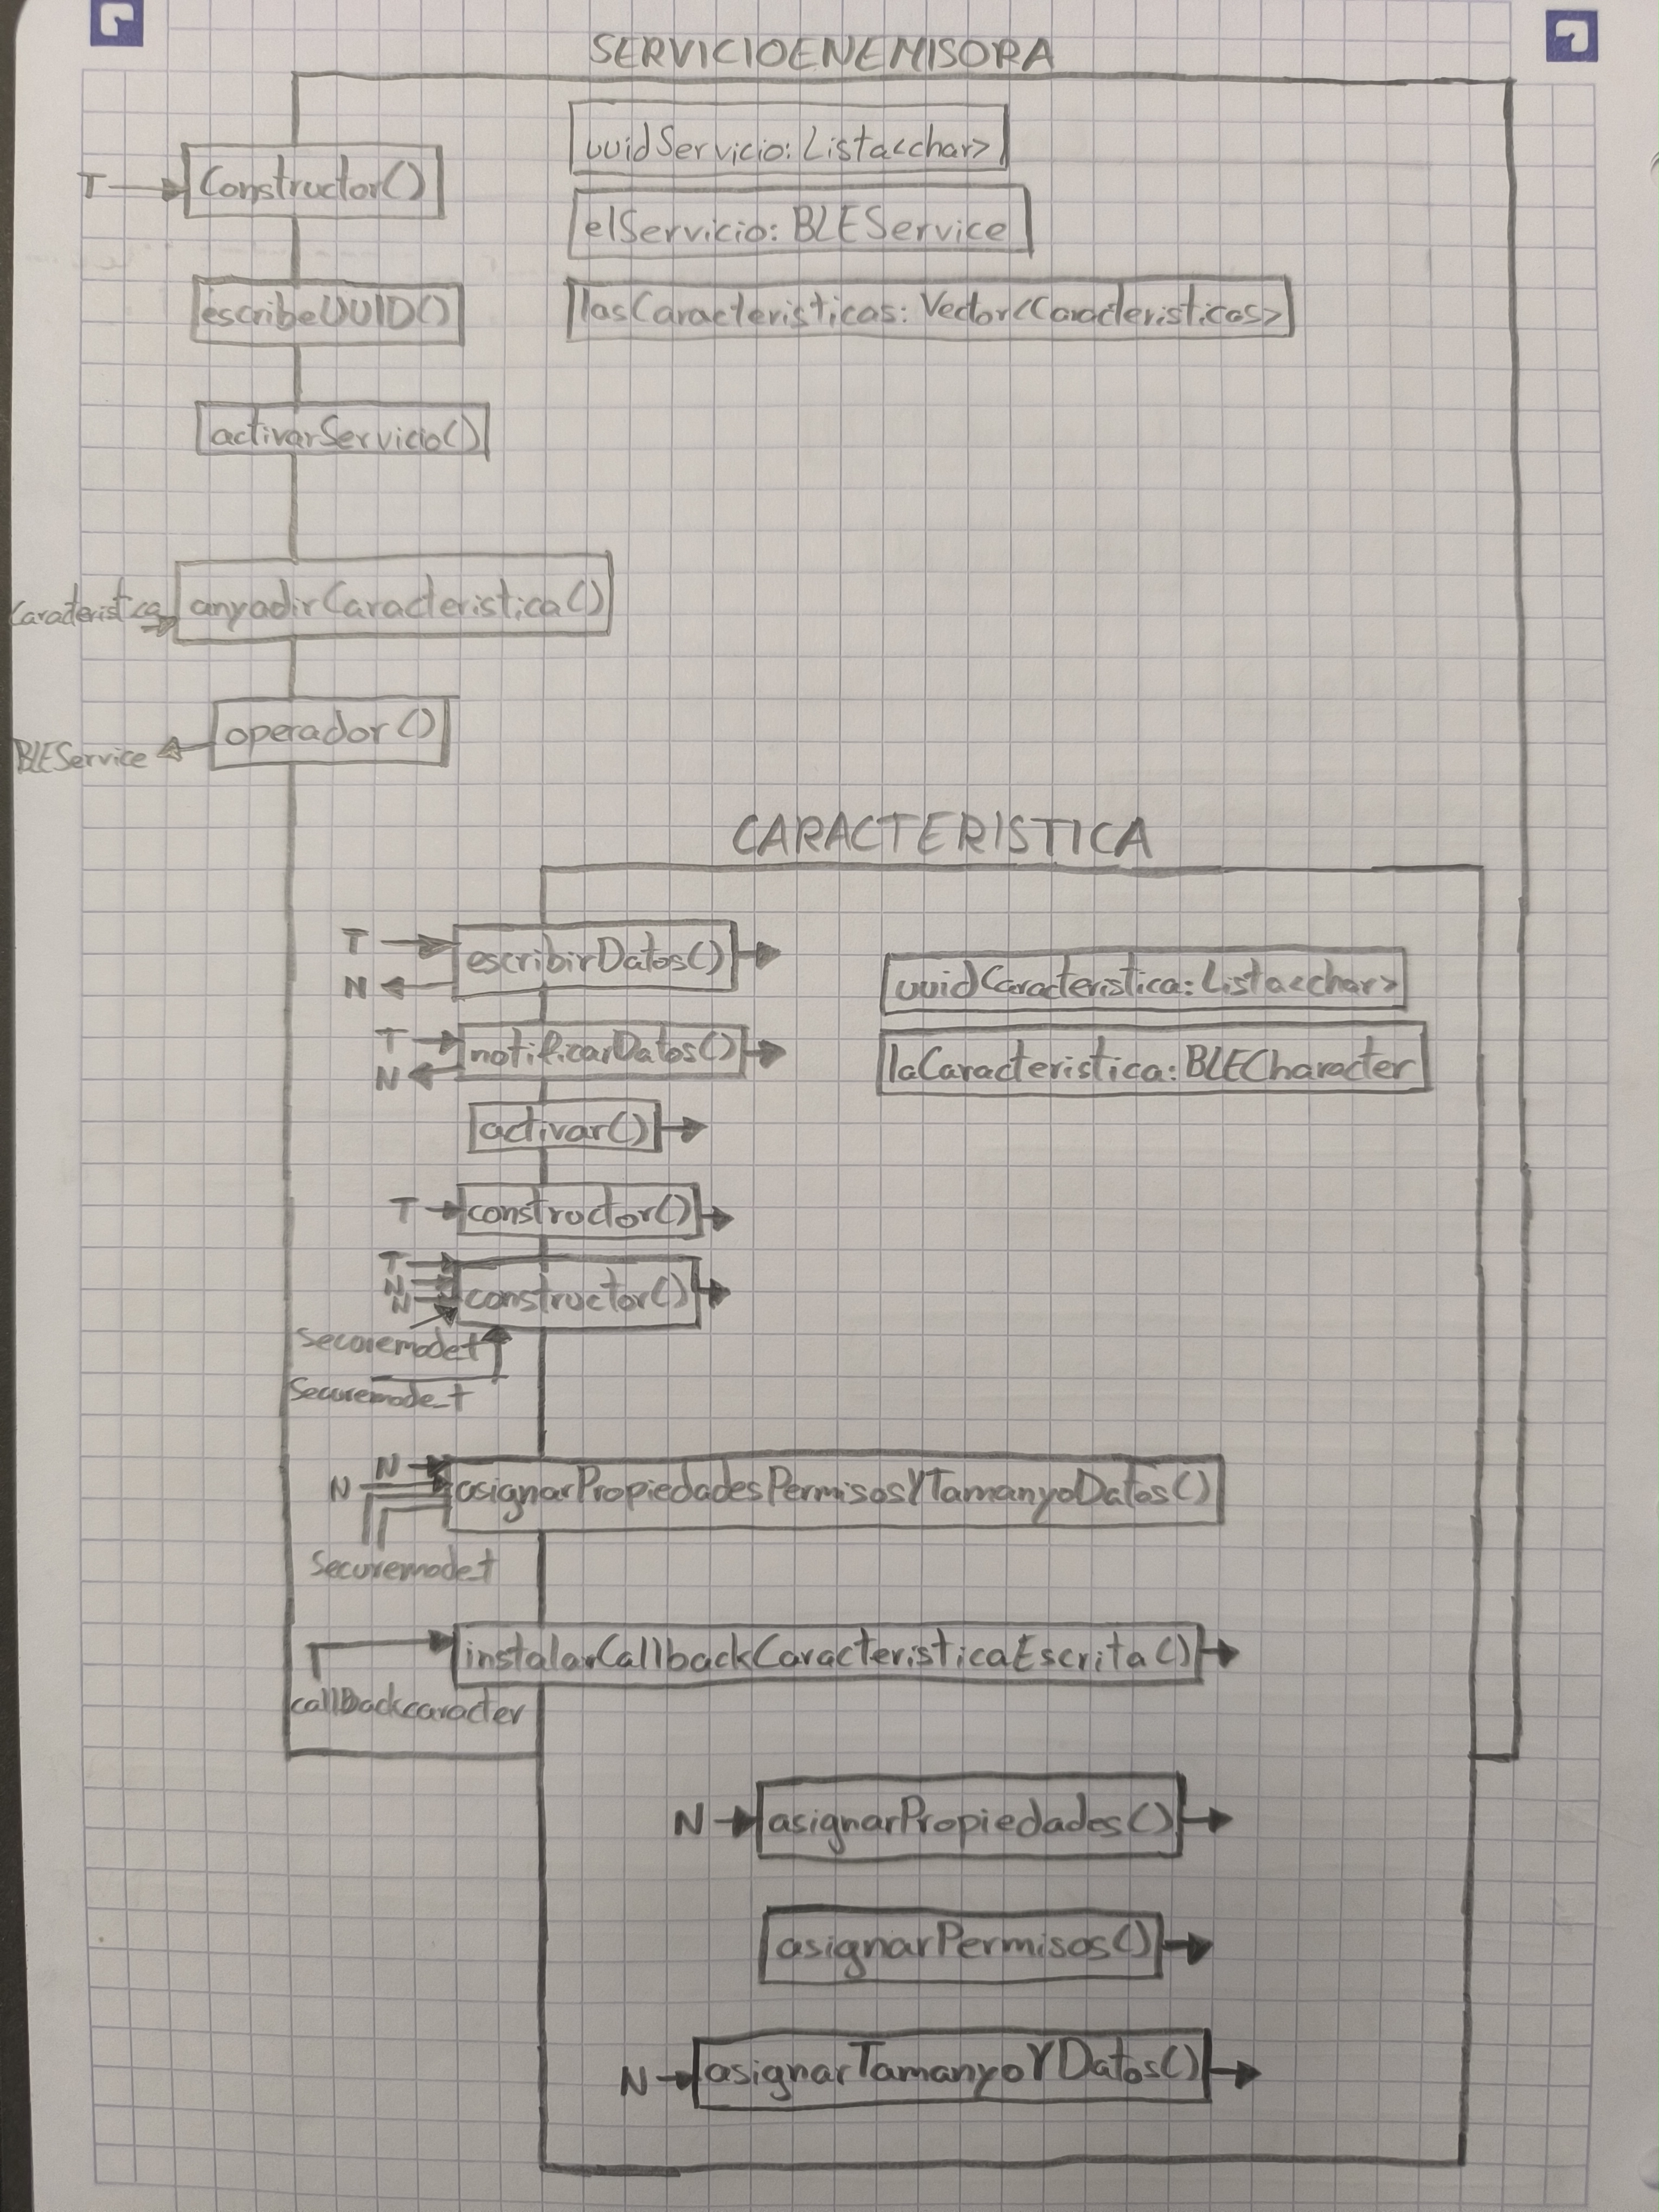 SERVICIOENEMISORA
uuidServicio: Lista<char>
T
Constructor()
elServicio: BLEService
escribeUUID()
lasCaracteristicas: Vector<Caracteristicas>
activarServicio()
Carateristica
anyadirCaracteristica()
operador()
BLEService
CARACTERISTICA
T
N
escribirDatos()
uuidCarateristica: Lista<char>
T
N
notificarDatos()
laCaracteristica: BLECharacter
activar()
T
constructor()
T
N
N
constructor()
Securemodet
Securemode_t
N
N
asignarPropiedadesPermisosYTamanyoDatos()
Securemode_t
instalarCallbackCaracteristicaEscrita()
callBackcaracter
N
asignarPropiedades()
asignarPermisos()
N
asignarTamanyoYDatos()